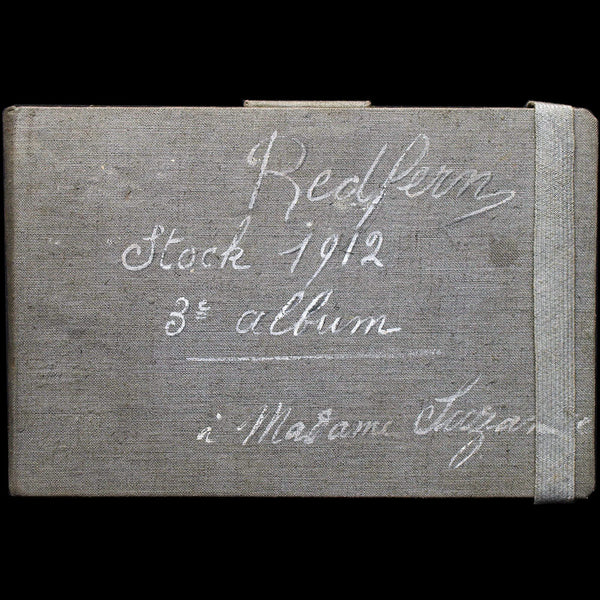 Redfern
Stock 1912
3e album
à Madame Suzanne